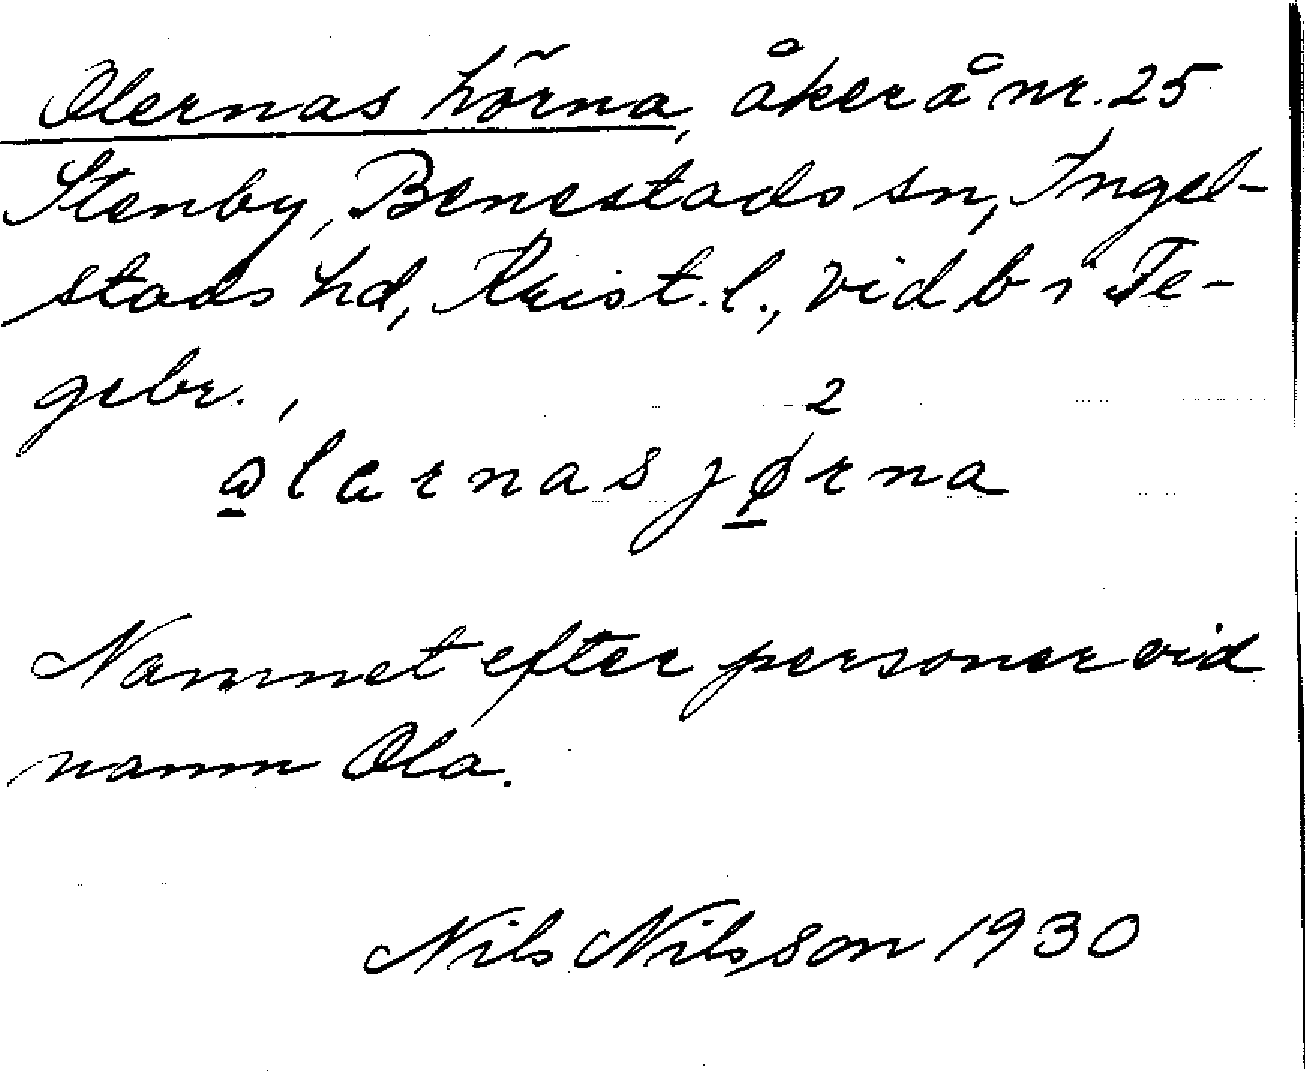 Olernas hörna, åker å nr. 25
Stenby, Benestads sn, Ingel-
stads hd, Krist. l., vid b i Te-
gebr.,
2
olernasjørna
Namnet efter personer vid
namn Ola.
Nils Nilsson 1930